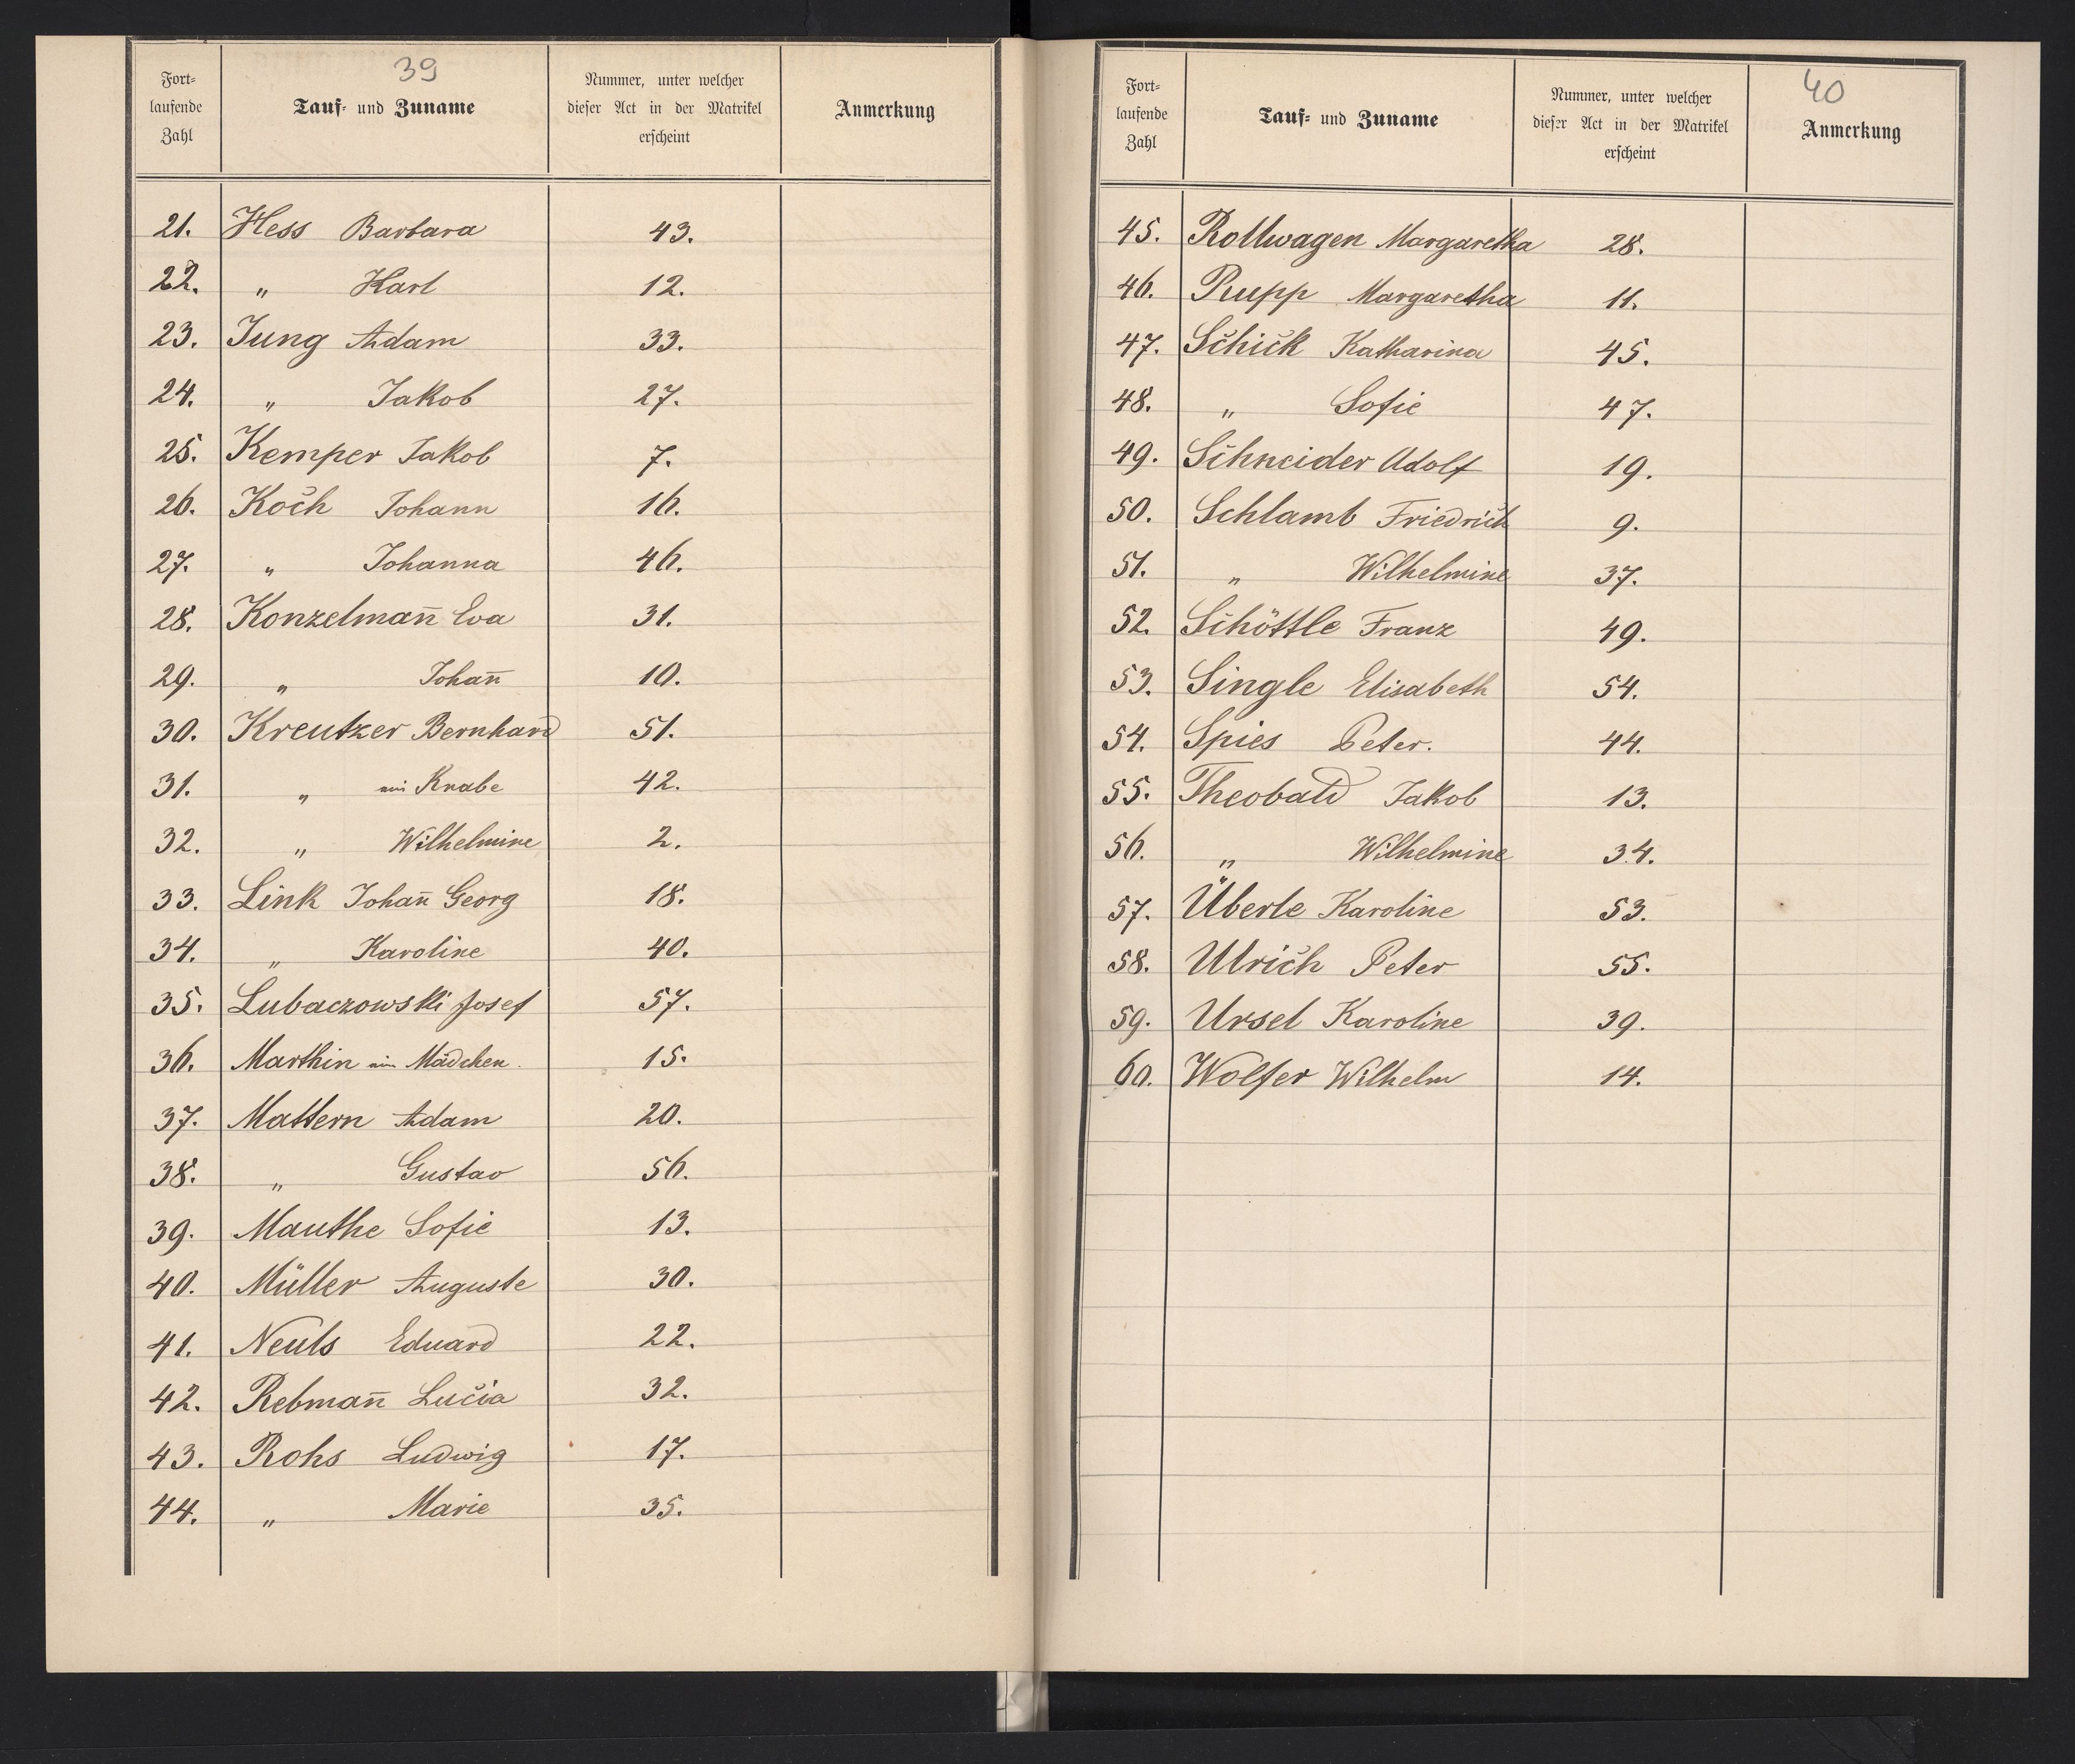 39
Fort-
laufende
Zahl
Tauf- und Zuname
Nummer, unter welcher
dieser Act in der Matrikel
erscheint
Anmerkung
21. Hess Barbara 43.
22. " Karl 12.
23. Jung Adam 33.
24. " Jakob 27.
25. Kemper Jakob 7.
26. Koch Johann 16.
27. " Johanna 46.
28. Konzelman̄ Eva 31.
29. " Johan̄ 10.
30. Kreutzer Bernhard 51.
31. " ein Knabe 42.
32. " Wilhelmine 2.
33. Link Johan̄ Georg 18.
34. " Karoline 40.
35. Lubaczowski Josef 57.
36. Marthin ein Mädchen. 15.
37. Mattern Adam 20.
38. " Gustav 56.
39. Mauthe Sofie 13.
40. Müller Auguste 30.
41. Neuls Eduard 22.
42. Rebman̄ Lucia 32.
43. Rohs Ludwig 17.
44. " Marie 35.
40
Fort-
laufende
Zahl
Tauf- und Zuname
Nummer, unter welcher
dieser Act in der Matrikel
erscheint
Anmerkung
45. Rollwagen Margaretha 28.
46. Rupp Margaretha 11.
47. Schick Katharina 45.
48. " Sofie 47.
49. Schneider Adolf 19.
50. Schlamb Friedrich 9.
51. " Wilhelmine 37.
52. Schöttle Franz 49.
53. Single Elisabeth 54.
54. Spies Peter. 44.
55. Theobald Jakob 13.
56. " Wilhelmine 34.
57. Überle Karoline 53.
58. Ulrich Peter 55.
59. Ursel Karoline 39.
60. Wolfer Wilhelm 14.